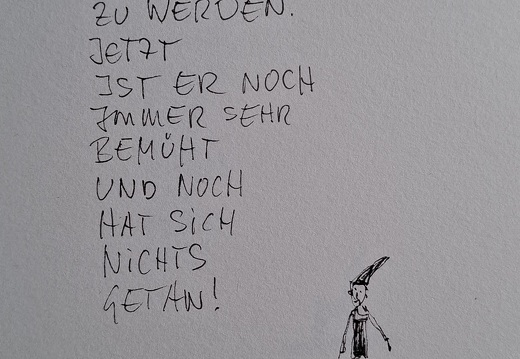 ZU WERDEN.
JETZT
IST ER NOCH
IMMER SEHR
BEMÜHT
UND NOCH
HAT SICH
NICHTS
GETAN!